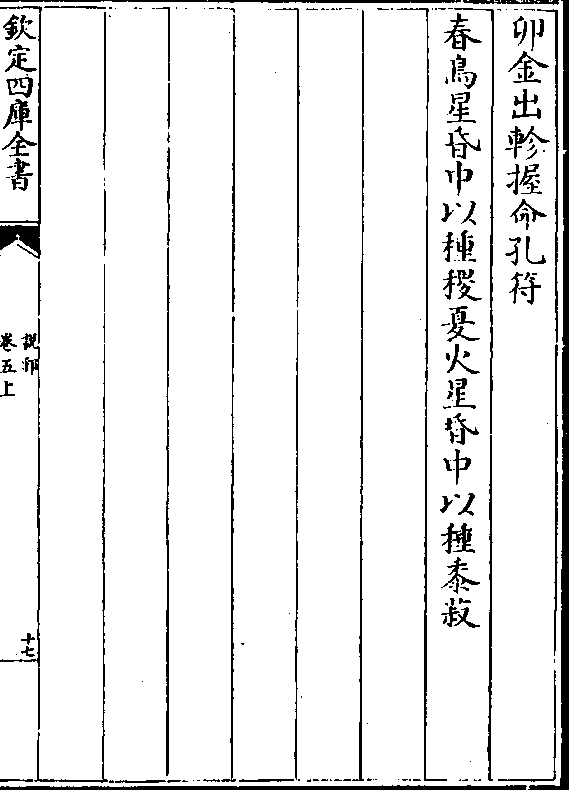 卯金出軫握命孔符
春鳥星昏中以種稷夏火星昏中以種黍菽
欽定四庫全書
說郛
卷五上
十七